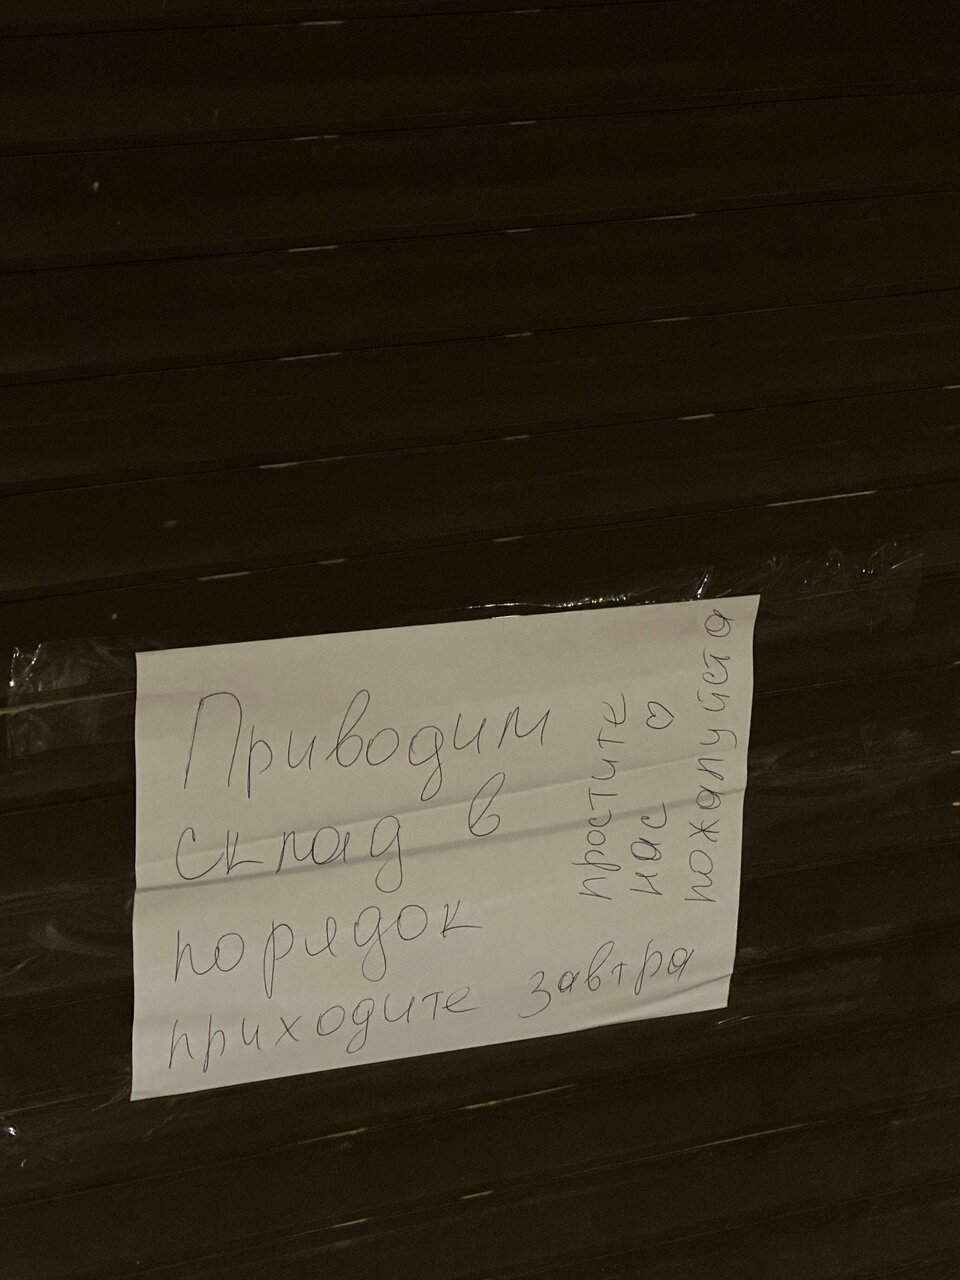 Приводим
склад в
порядок
приходите завтра
простите
нас ♡
пожалуйста